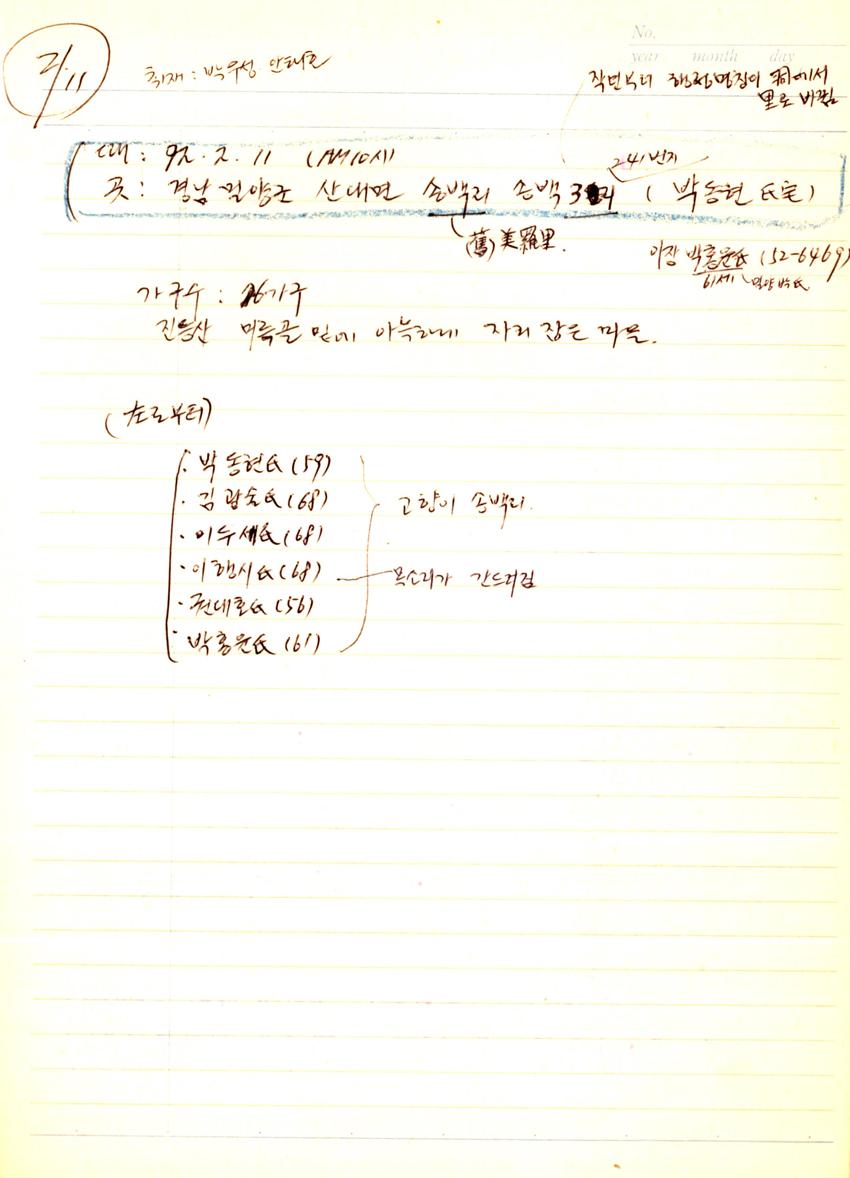 No.
year month day
2/11
취재 : 박우성 안태호
작년부터 행정명칭이 洞에서
里로 바뀜
때 : 92. 2. 11 (AM 10시)
241번지
곳 : 경남 밀양군 산내면 송백리 송백3리 (박동현 氏宅)
(舊) 美羅里.
이장 박홍윤氏 (52-6469)
61세 밀양 박氏
가구수 : 가구
밑에 아늑하게 자리 잡은 마을.
(左로부터)
· 박동현氏 (59)
· 김 氏 (68)
고향이 송백리.
· 이두세氏 (68)
· 이행시氏 (68)
목소리가 간드러짐
· 권대호氏 (56)
· 박홍윤氏 (61)